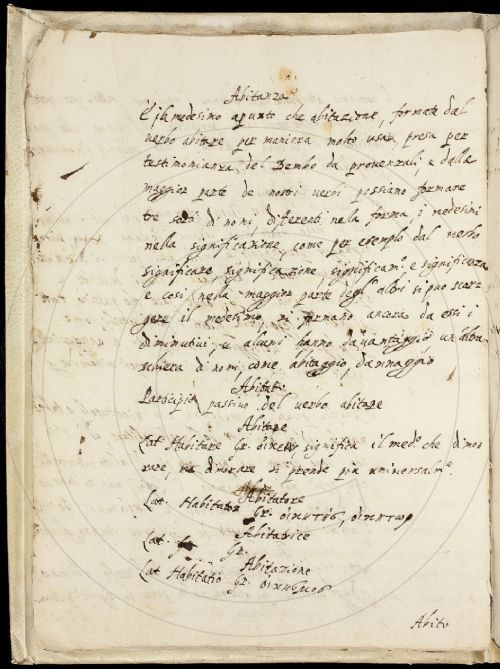 Abitanza
È il medesimo apunto che abitazione, formata dal
verbo abitare per maniera molto usata, presa per
testimonianza del Bembo da provenzali, e dalla
maggior parte de nostri verbi possiamo formare
tre sorti di nomi, differenti nella forma, i medesimi
nella significazione, come per esempio dal verbo
significare, significazione, significam.º e significanza
e così nella maggior parte degl' altri si può scorg
gere il medesimo, si formano ancora da essi i
diminutivi, e alcuni hanno davantaggio un'altra
schiera di nomi come abitaggio, dannaggio
Abitato
Participio passivo del verbo abitare
Abitare
Lat Habitare Gr. οἰκεῖν significa il med.º che dimo
rare, ma dimorare si prende più universalm.e
Abitatore
Lat. Habitator Gr. οἰκητὴς, οἰκήτωρ
Abitatrice
Lat. Gr.
Abitazione
Lat Habitatio Gr. οἴκησις
Abito